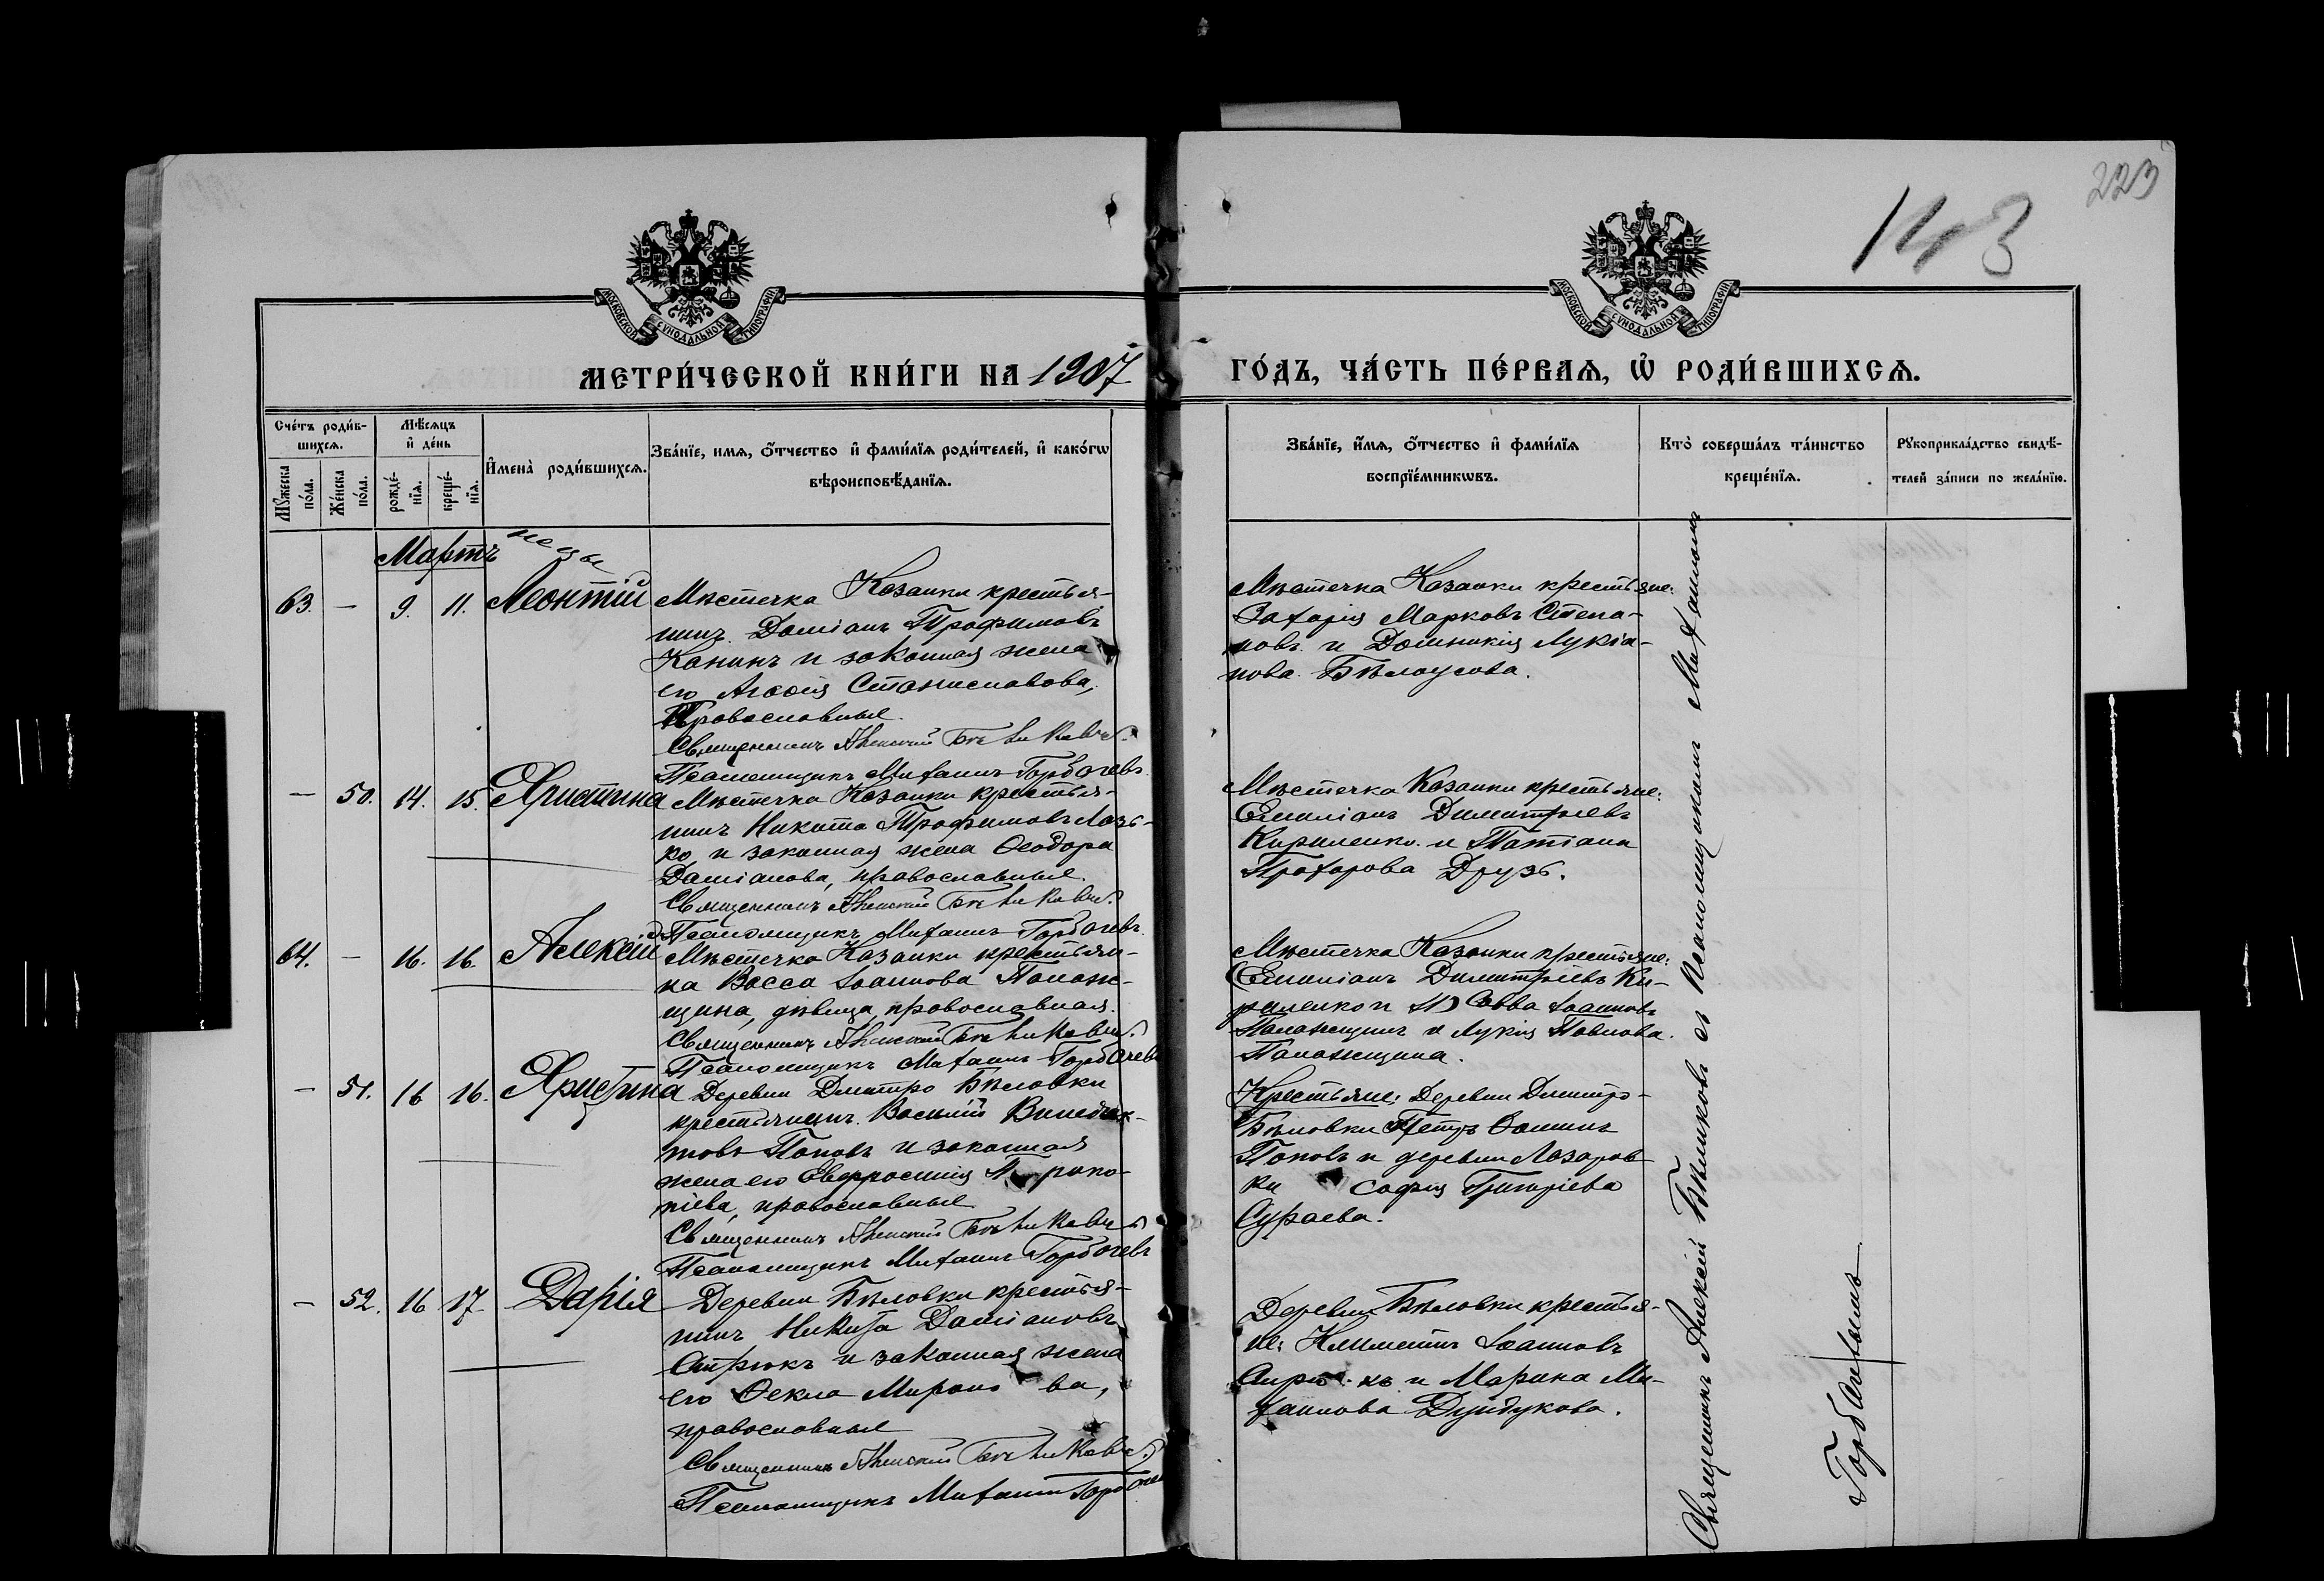 223
143
МОСКОВСКОЙ СУНОДАЛЬНОЙ ТИПОГРАФІИ
МОСКОВСКОЙ СУНОДАЛЬНОЙ ТИПОГРАФІИ
МЕТРИ́ЧЕСКОЙ КНИ́ГИ НА 1907
ГО́ДЪ, ЧА́СТЬ ПЕ́РВАѦ, Ѽ РОДИ́ВШИХСѦ.
Сче́тъ роди́в-
шихсѧ.
Мꙋ́жеска
по́ла.
Же́нска
по́ла.
Мѣ́сѧцъ
и҆ де́нь
рожде́-
нїѧ.
креще́-
нїѧ.
И҆мена̀ роди́вшихсѧ.
Зва́нїе, имѧ, ѻ҆́тчество и҆ фами́лїѧ роди́телей, и҆ како́гѡ
вѣроисповѣ́данїѧ.
Зва́нїе, и҆́мѧ, ѻ҆́тчество и҆ фами́лїѧ
воспрїе́мникѡвъ.
Кто̀ соверша́лъ та́инство
креще́нїѧ.
Рꙋкоприкла́дство свидѣ́-
телей за́писи по жела́нїю.
Мартъ
63. — 9. 11. Леонтій
Мѣстечка Казанки крестья-
нинъ Даміанъ Трофимовъ
Канинъ и законная жена
его Агафія Станиславова,
Православные.
Священникъ Алексій Бѣликовъ
Псаломщикъ Михаилъ Горбачевъ
Мѣстечка Казанки крестьяне:
Захарія Марковъ Степа-
новъ и Домникія Лукіа-
нова Бѣлоусова.
— 50. 14. 15. Христина
Мѣстечка Казанки крестья-
нинъ Никита Трофимовъ Лазь-
ко, и законная жена Ѳеодора
Даміанова, православные.
Священникъ Алексій Бѣликовъ
Псаломщикъ Михаилъ Горбачевъ
Мѣстечка Казанки крестьяне:
Емиліанъ Димитріевъ
Кириленко и Татіана
Прохорова Друзь.
64. — 16. 16. Алексій
Мѣстечка Казанки крестьян-
ка Васса Іоаннова Паланж-
щина, дѣвица, православная.
Священникъ Алексій Бѣликовъ
Псаломщикъ Михаилъ Горбачевъ
Мѣстечка Казанки крестьяне:
Емиліанъ Димитріевъ Ки-
риленко и Савва Іоанновъ
и Лукія Павлова
— 51. 16 16. Христина
Деревни Дмитро Бѣловки
крестьянинъ Василій Винедик-
товъ Поповъ и законная
жена его Евфросинія Проко-
піева, православные
Священникъ Алексій Бѣликовъ
Псаломщикъ Михаилъ Горбачевъ
Крестьяне: Деревни Дмитро-
Бѣловки Петръ Ѳоминъ
Поповъ и деревни Лазаров-
ки Софія Григоріева
Сураева.
— 52. 16 17 Дарія
Деревни Бѣловки крестья-
нинъ Никита Даміановъ
и законная жена
его Ѳекла Миронова,
православные
Священникъ Алексій Бѣликовъ
Псаломщикъ Михаилъ Горбачевъ
Деревни Бѣловки крестья-
не: Климентъ Іоанновъ
и Марина Ми-
хаилова Дундукова.
Священникъ Алексій Бѣликовъ съ Псаломщикомъ Михаиломъ
Горбачевымъ